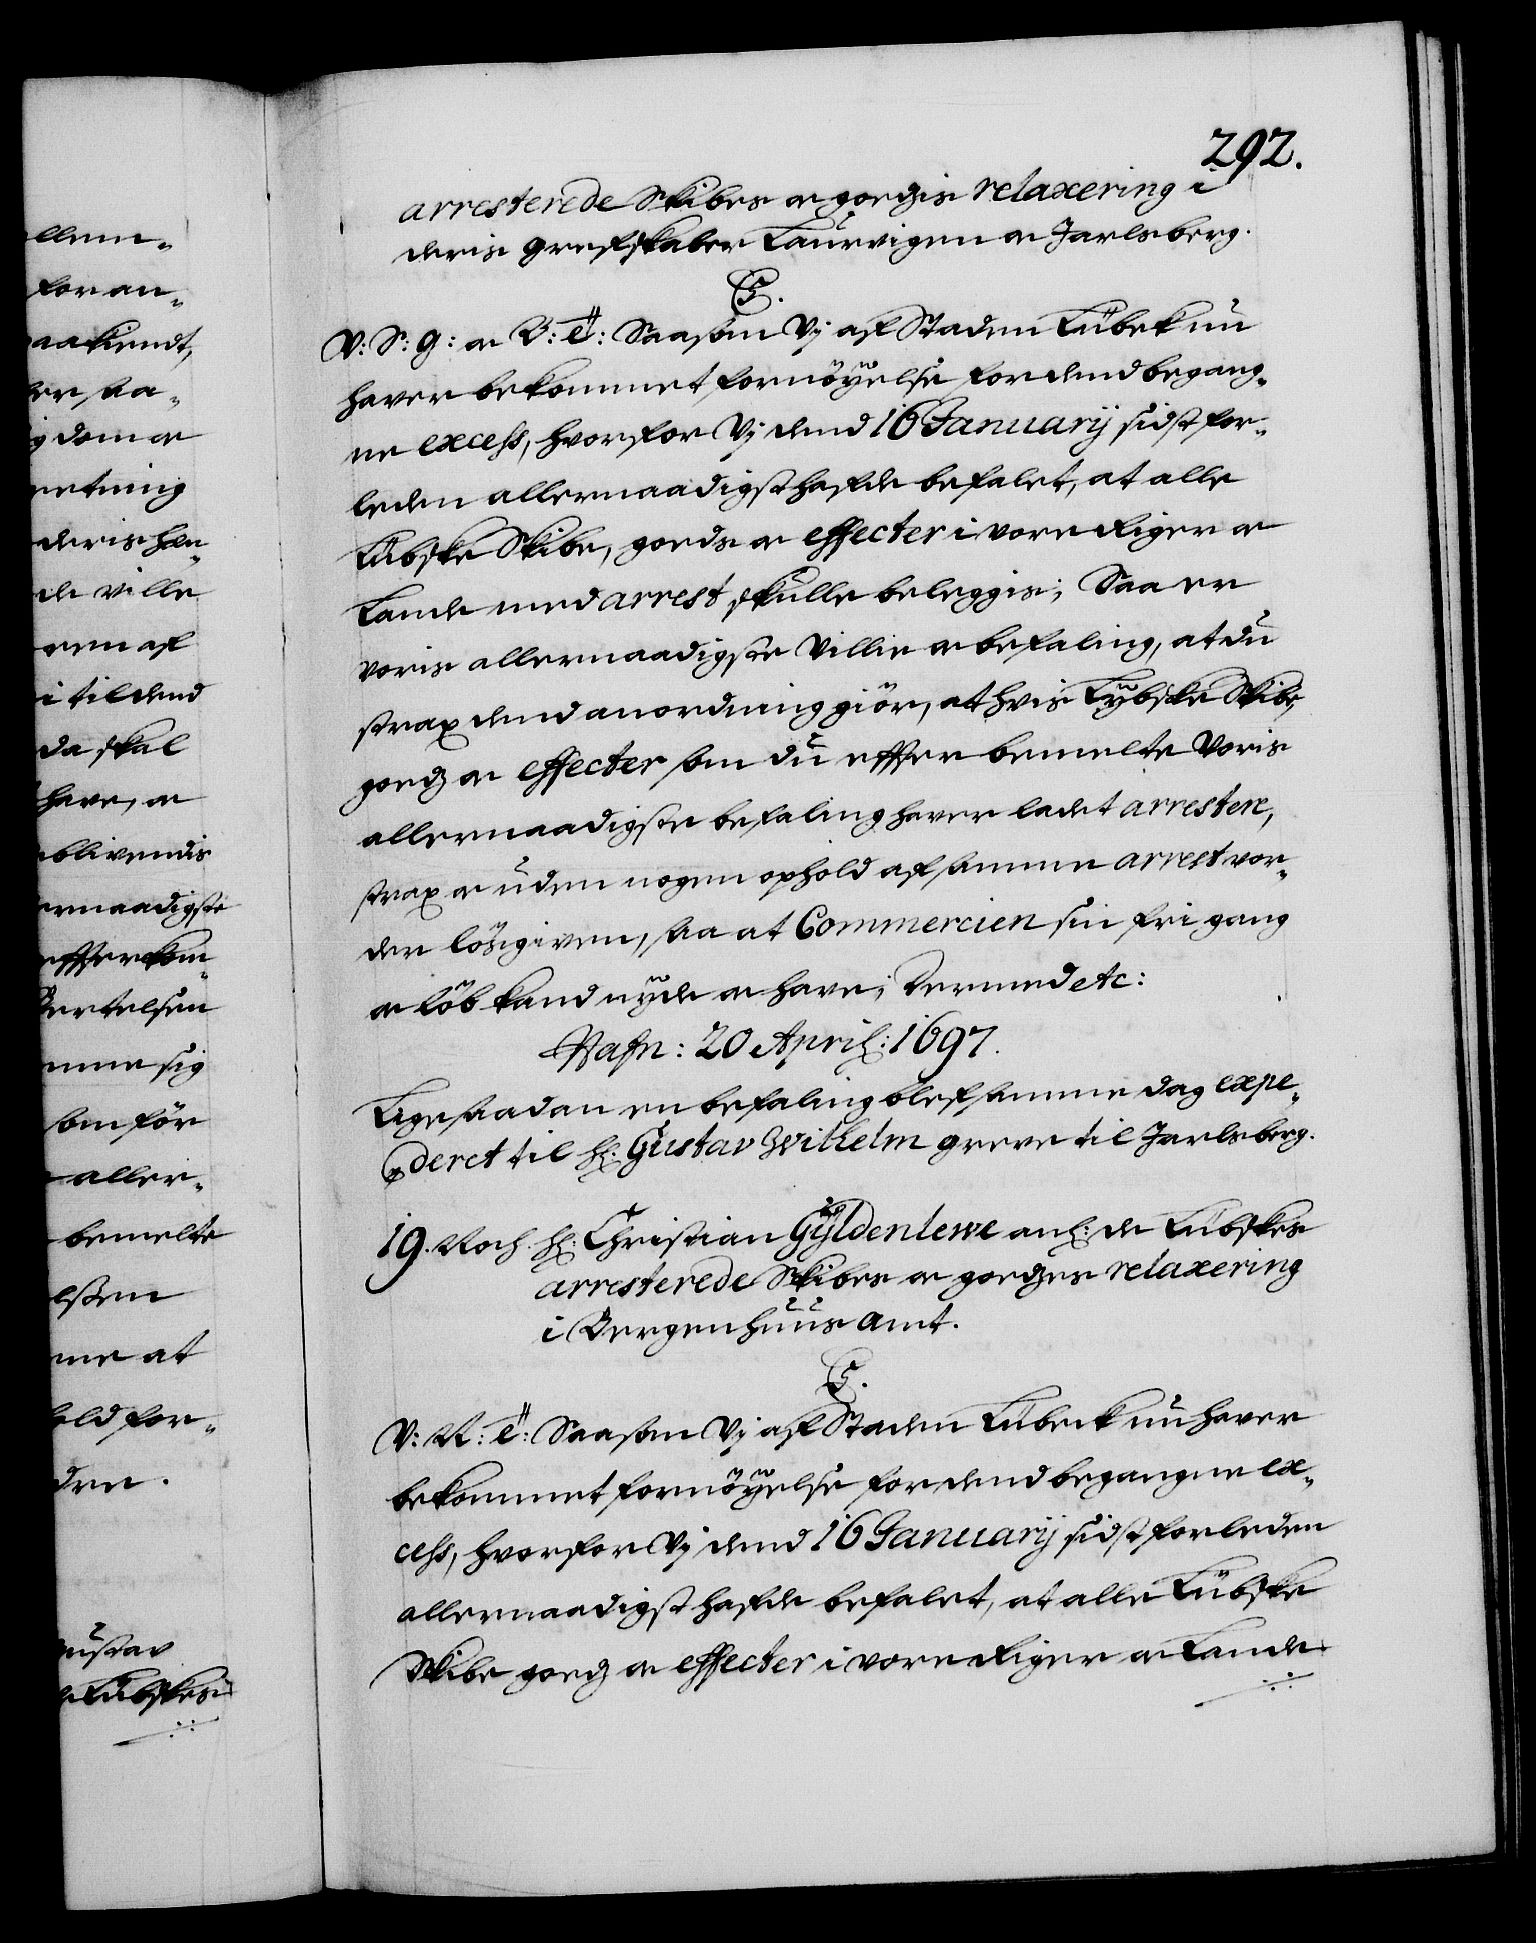 292.
arresterede Skibes oc godzis relaxering i
deris Grefskaber Laurvigen oc Jarlsberg.
C5.
V: S: G: oc B: Et: Saasom Vj af Staden Lübek nu
haver bekommet fornöÿelse for dend begang-
ne excess, hvorfor Vj dend 16 Januarij sidst for-
leden allernaadigst hafde befalet, at alle
Lübske Skibe, gods oc effecter i vore Riger oc
Lande med arrest skulle beleggis; Saa er
voris allernaadigste Villie oc befaling, at du
strax dend anordning giör, at hvis Lÿbske Skibe,
godz oc effecter som du effter bemelte Voris
allernaadigste befaling haver ladet arrestere,
strax oc uden nogen ophold af samme arrest vor-
der lösgiven, saa at Commercien sin fri gang
oc löb kand nÿde oc have; Dermed etc:
Hafn: 20 April: 1697.
Lige saadan en befaling blef samme dag expe-
deret til Hr: Gustav Wilhelm Greve til Jarlsberg.
19. Hr: Christian Gÿldenlewe anl: de Lübskes
arresterede Skibes oc godzes relaxering
i Bergenhuus Amt.
C5.
V: Et: Saasom Vj af Staden Lübeck nu haver
bekommet fornöÿelse for dend begangne ex-
cess, hvorfor Vj dend 16 Januarij sidst forleden
allernaadigst hafde befalet, at alle Lübske
Skibe godz oc effecter i vore Riger oc Lande